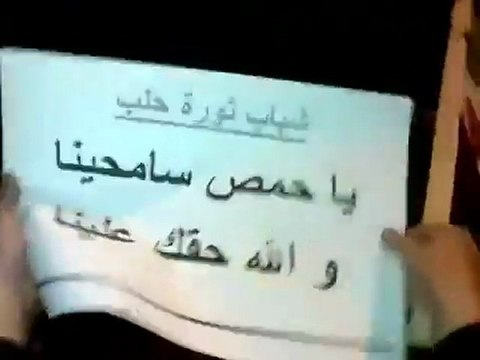 شباب ثورة حلب
يا حمص سامحينا
و الله حقك علينا